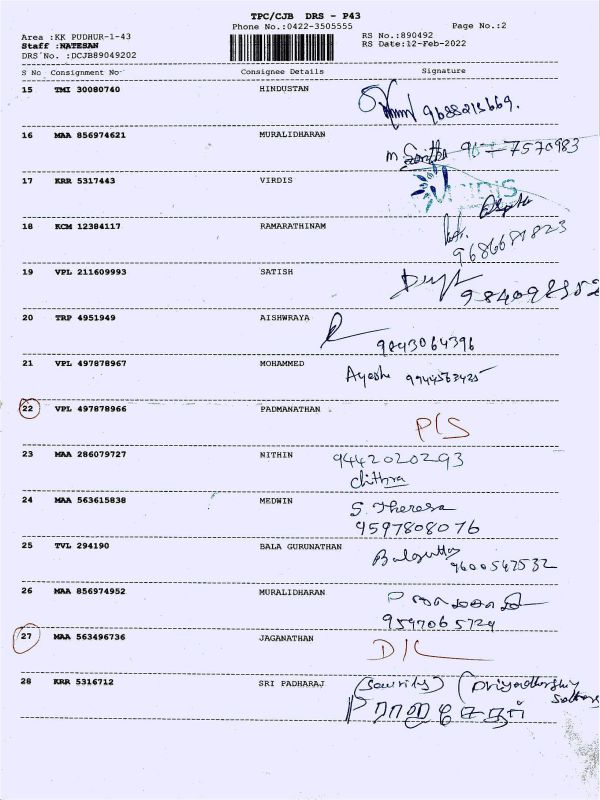 TPC/CJB DRS - P43
Phone No.:0422-3505555
Page No.:2
Area :KK PUDHUR-1-43
RS No.:890492
Staff :NATESAN
RS Date:12-Feb-2022
DRS No. :DCJB89049202
S No Consignment No Consignee Details Signature
15 TMI 30080740 HINDUSTAN
16 MAA 856974621 MURALIDHARAN
17 KRR 5317443 VIRDIS
18 KCM 12384117 RAMARATHINAM
19 VPL 211609993 SATISH
20 TRP 4951949 AISHWRAYA
9843064396
21 VPL 497878967 MOHAMMED
Ayesha
22 VPL 497878966 PADMANATHAN
23 MAA 286079727 NITHIN 9442020293
chithra
24 MAA 563615838 MEDWIN S. Theresa
9597808076
25 TVL 294190 BALA GURUNATHAN
9600547532
26 MAA 856974952 MURALIDHARAN
9597065724
27 MAA 563496736 JAGANATHAN
28 KRR 5316712 SRI PADHARAJ